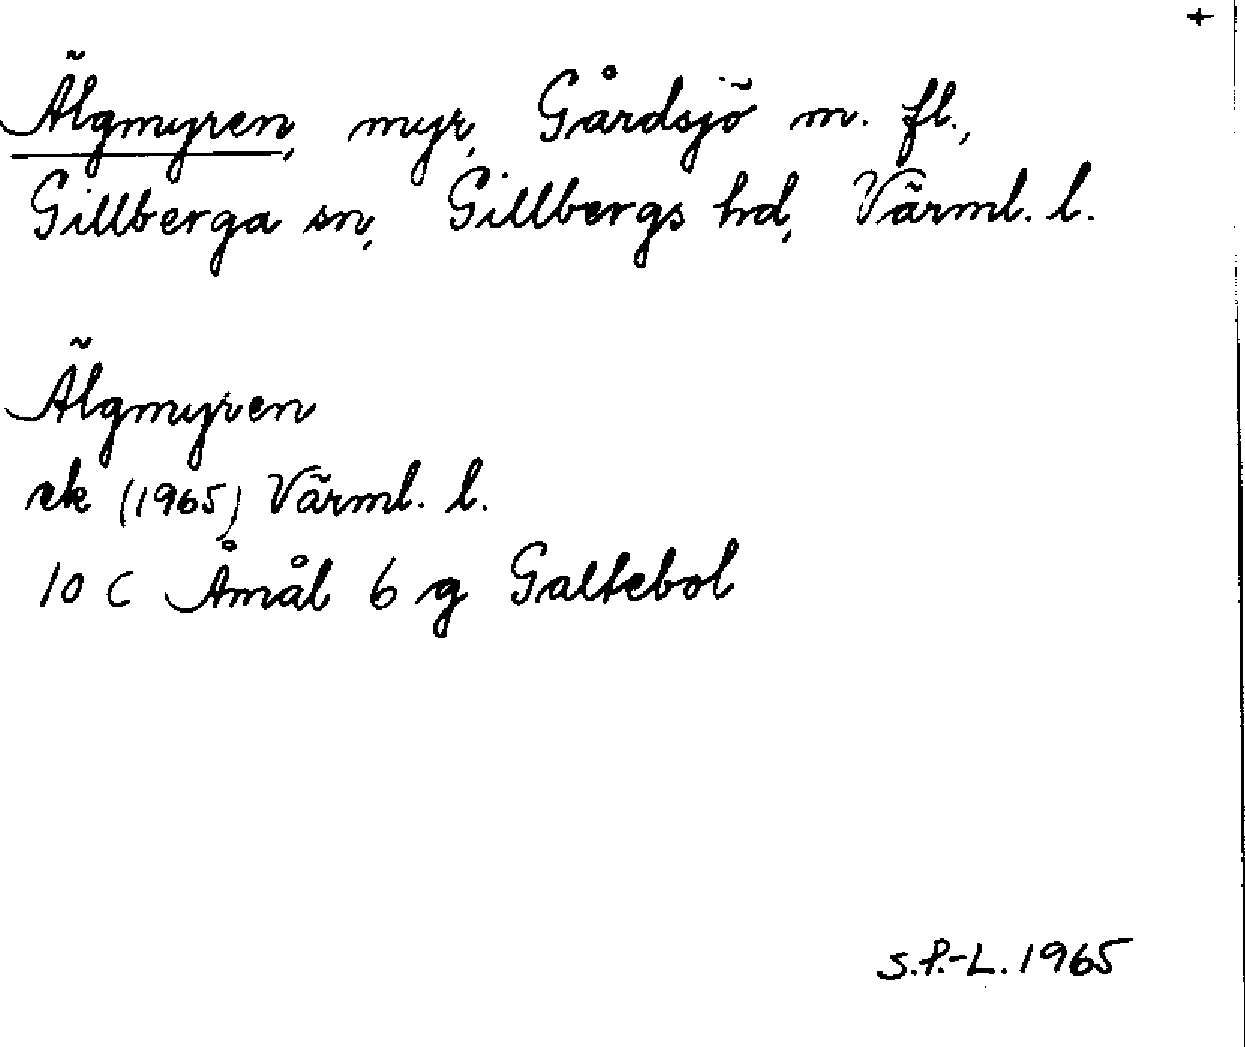 +
Älgmyren, myr, Gårdsjö m. fl.,
Gillberga sn, Gillbergs hd, Värml. l.
Älgmyren
ek (1965) Värml. l.
10 C Åmål 6 g Galtebol
S.P.-L. 1965